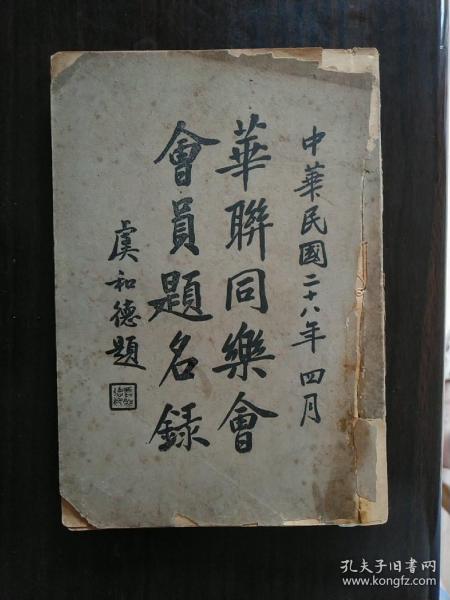 中華民國二十八年四月
華聯同樂會
會員題名錄
虞和德題
孔夫子旧书网
www.kongfz.com